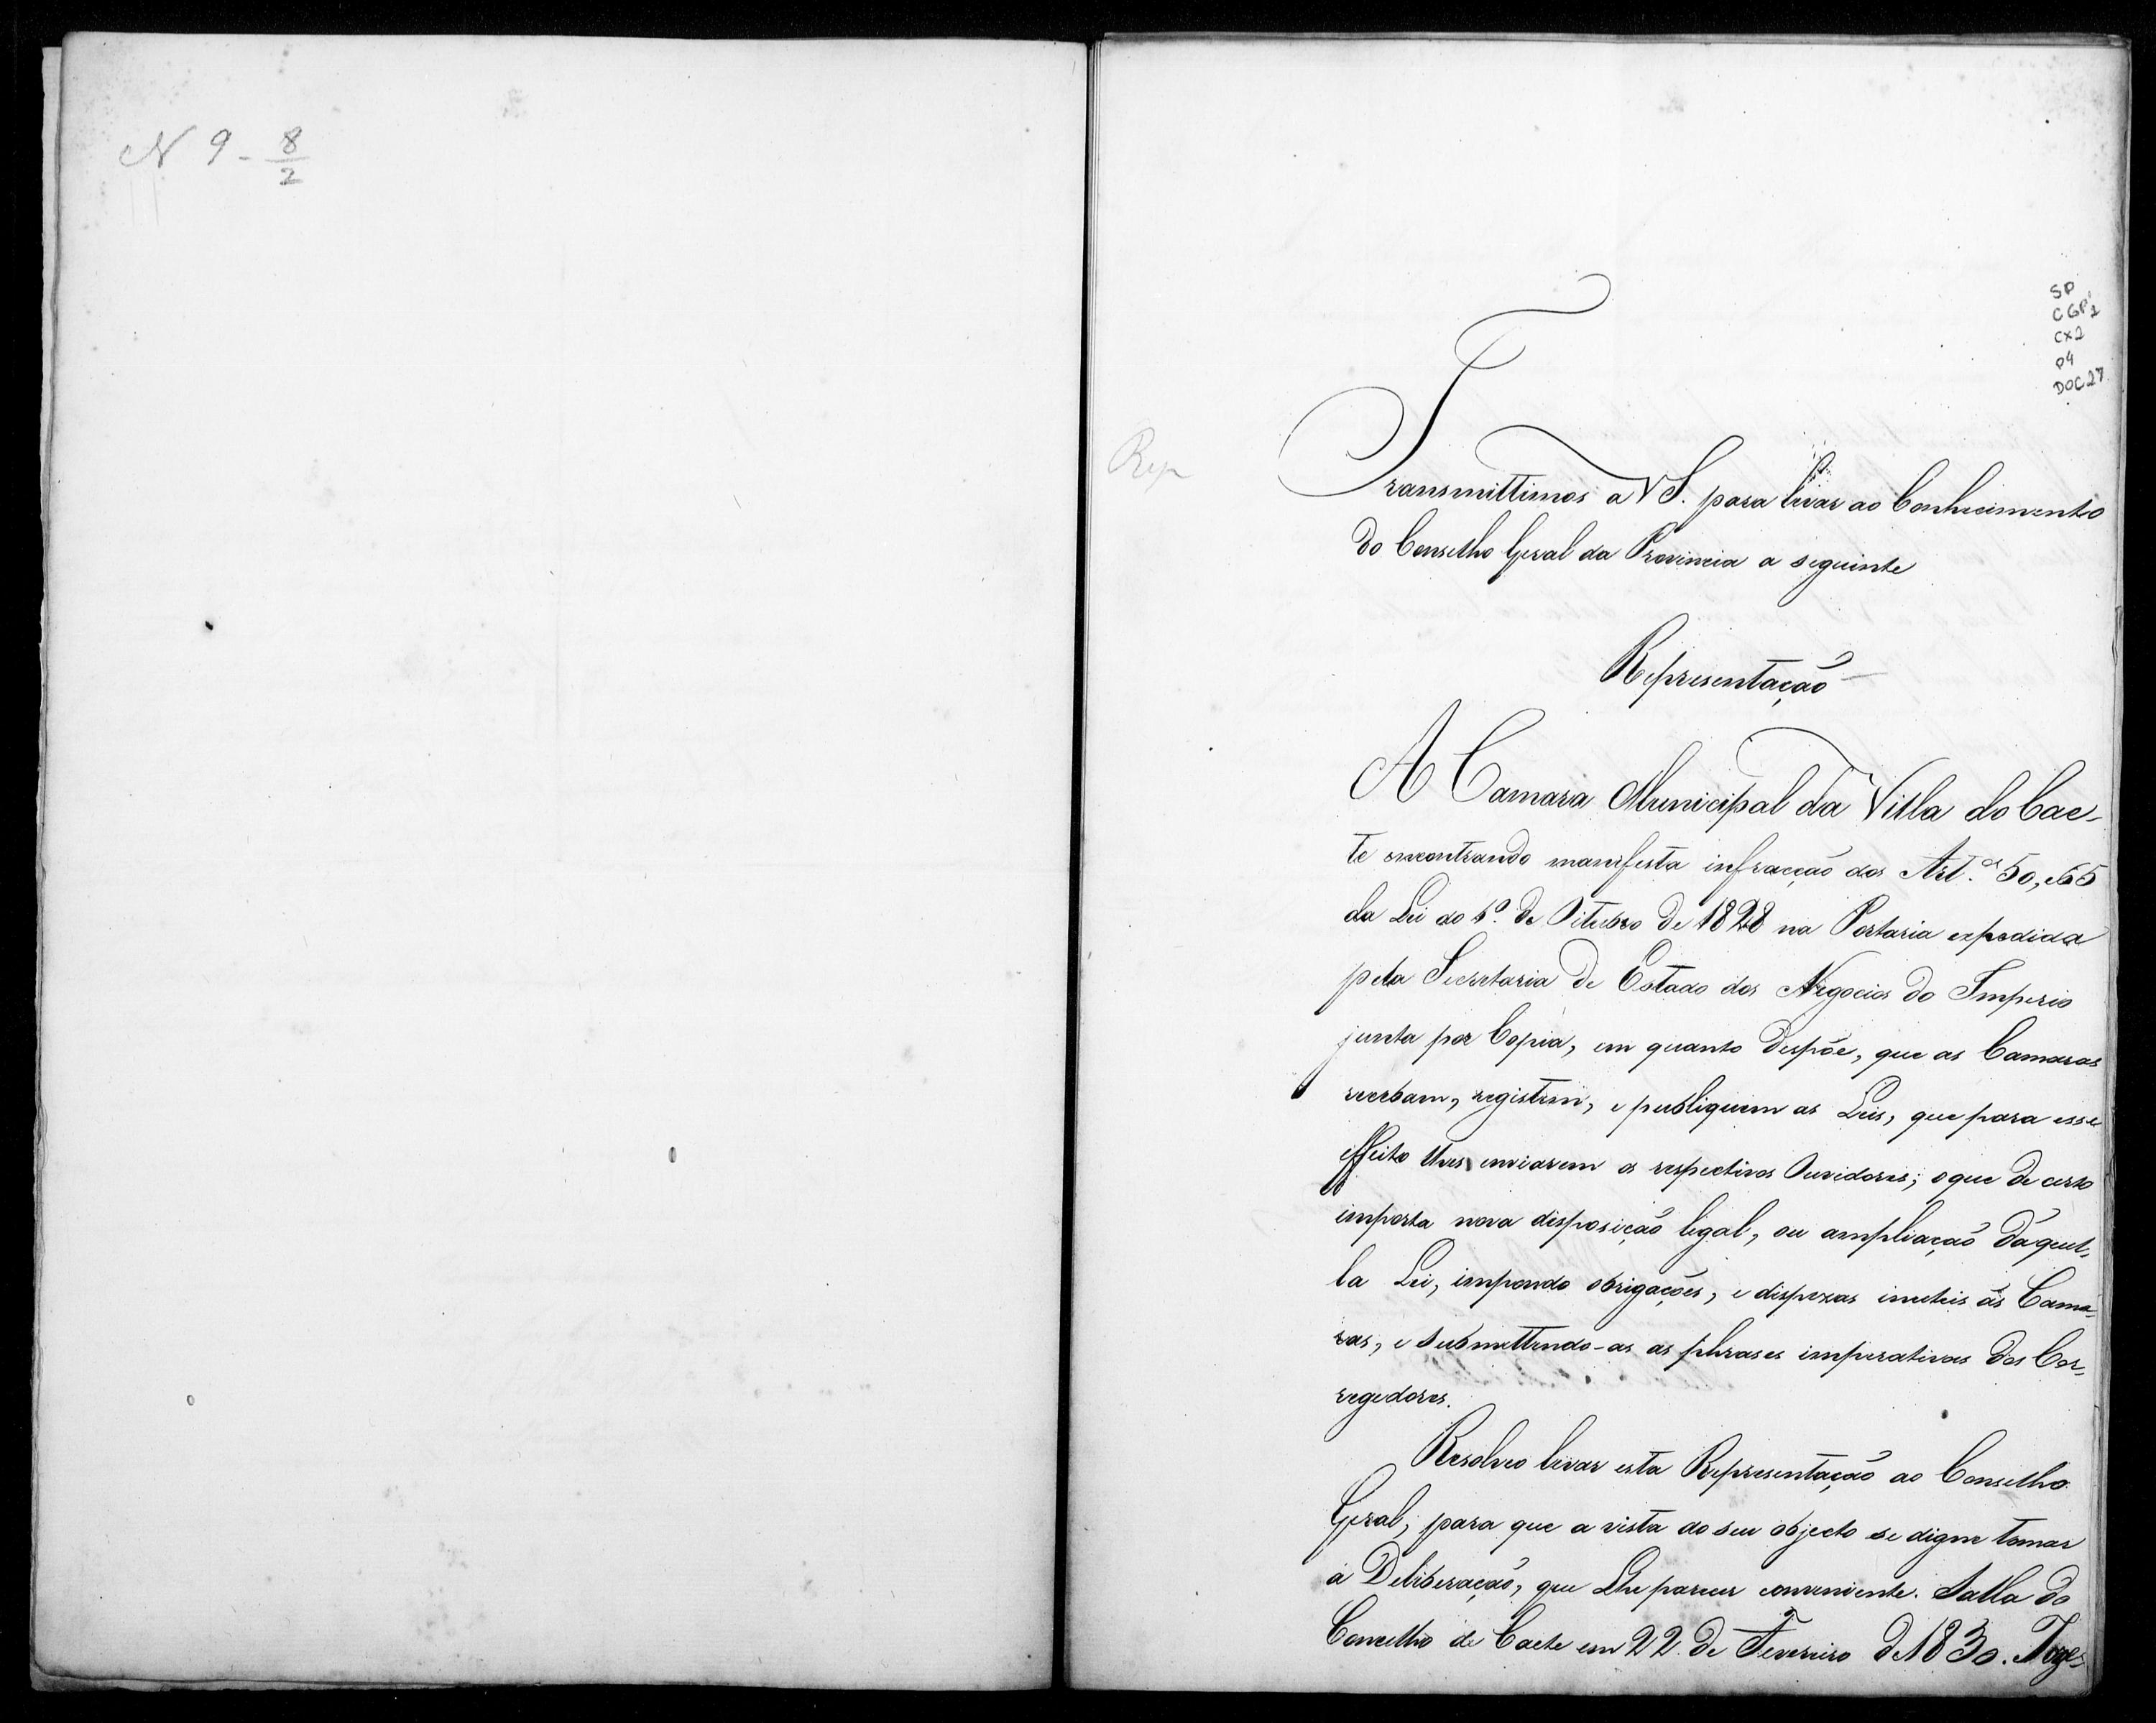 N 9 - 8/2
SP
CGP1
CX2
P4
DOC27
Rep
Transmittimos a V S. para levar ao Conhecimento
do Conselho Geral da Provincia a seguinte
Representação
A Camara Municipal da Villa do Cae-
te encontrando manifesta infracção dos Art.os 50, e 65
da Lei do 1º. de Oitubro de 1828 na Portaria expedida
pela Secretaria de Estado dos Negocios do Imperio
junta por Copia, em quanto despõe, que as Camaras
recebam, registem, e publiquem as Leis, que para esse
effeito lhes enviarem os respectivos Ouvidores; o que de certo
importa nova disposição legal, ou ampliação d'aquel-
la Lei, impondo obrigações, e dispezas inuteis ás Cama-
ras, e submettendo-as as phrases imperativas dos Cor-
regedores.
Resolveo levar esta Representação ao Conselho
Geral, para que a vista do seu objecto se digne tomar
a Deliberação, que Lhe parecer conveniente. Salla do
Concelho de Caete em 22 de Fevereiro de 1830.